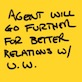 AGENT WILL
GO FURTHER
FOR BETTER
RELATIONS W/
U.W.